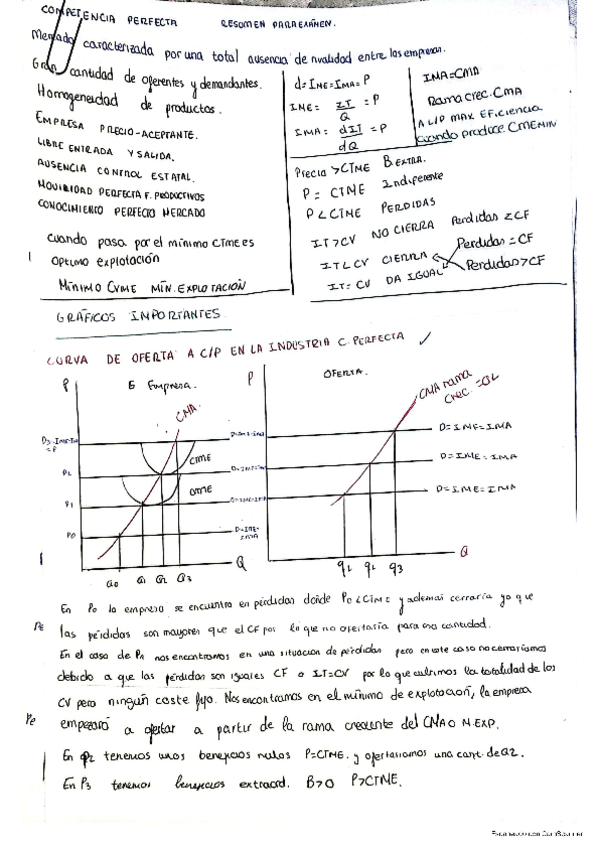 COMPETENCIA PERFECTA RESUMEN PARA EXAMEN.
Mercado caracterizada por una total ausencia de rivalidad entre las empresas.
Gran cantidad de oferentes y demandantes.
Homogeneidad de productos.
EMPRESA PRECIO-ACEPTANTE.
LIBRE ENTRADA Y SALIDA.
AUSENCIA CONTROL ESTATAL.
MOVILIDAD PERFECTA F. PRODUCTIVOS
CONOCIMIENTO PERFECTO MERCADO
Cuando pasa por el mínimo CTME es
OPTIMO explotación
MÍNIMO CVME MÍN. EXPLOTACIÓN
d = IME = IMA = P
IME = IT/Q = P
IMA = dIT/dQ = P
IMA = CMA
Rama crec. CMA
A L/P MAX EFICIENCIA
cuando produce CMEMIN
Precio > CTME B EXTRA.
P = CTME Indiferente
P < CTME PERDIDAS
IT > CV NO CIERRA Perdidas < CF
IT < CV CIERRA Perdidas = CF
IT = CV DA IGUAL Perdidas > CF
GRÁFICOS IMPORTANTES
CURVA DE OFERTA A C/P EN LA INDUSTRIA C. PERFECTA ✓
P Empresa.
CMA
CTME
P2
P1
P0
Q0 Q1 Q2 Q3 Q
P OFERTA.
CMA rama
crec.
D = IME = IMA
D = IME = IMA
D = IME = IMA
q3 Q
En P0 la empresa se encuentra en pérdidas donde P0 < CTME y además cerraría ya que
las pérdidas son mayores que el CF por lo que no ofertaría para esa cantidad.
En el caso de P1 nos encontramos en una situación de pérdidas pero en este caso no cerraríamos
debido a que las pérdidas son iguales CF o IT=CV por lo que cubrimos la totalidad de los
CV pero ningún coste fijo. Nos encontramos en el mínimo de explotación, la empresa
empezará a ofertar a partir de la rama creciente del CMA o M.EXP.
En P2 tenemos unos beneficios nulos P=CTME. y ofertaríamos una cant. de Q2.
En P3 tenemos beneficios extraord. B>0 P>CTME.
Escaneado con CamScanner